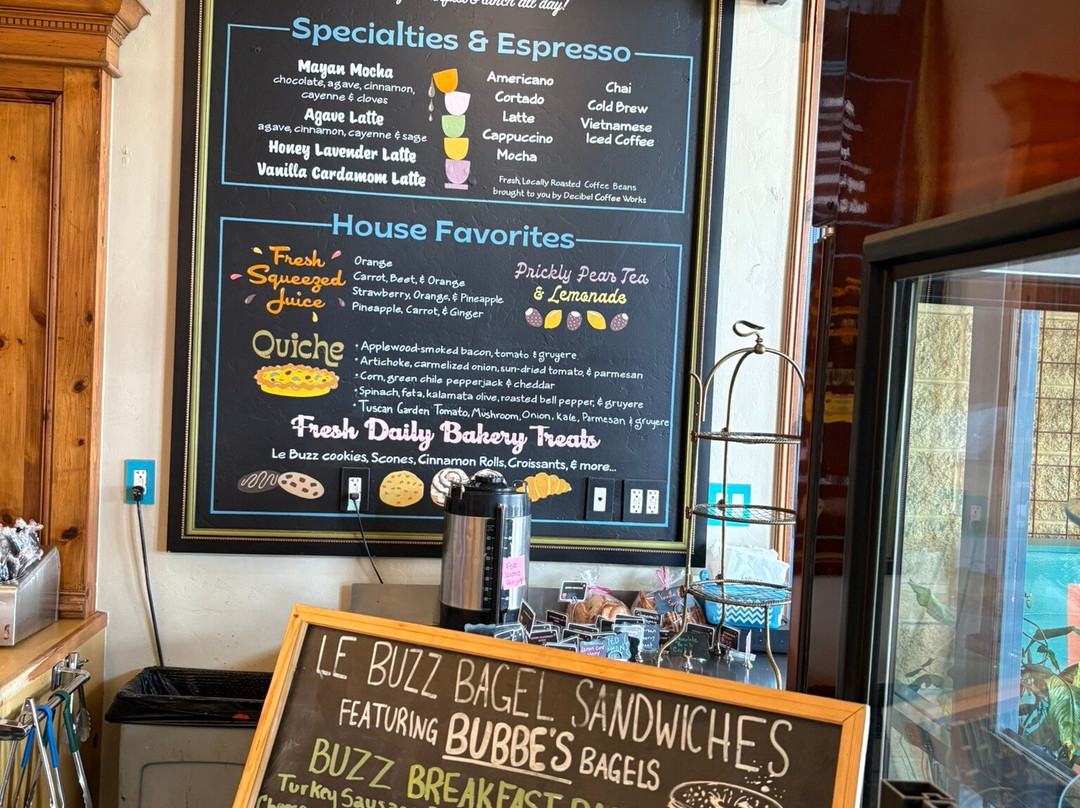 lunch all day!
Specialties & Espresso
Mayan Mocha
chocolate, agave, cinnamon,
cayenne & cloves
Agave Latte
agave, cinnamon, cayenne & sage
Honey Lavender Latte
Vanilla Cardamom Latte
Americano
Cortado
Latte
Cappuccino
Mocha
Chai
Cold Brew
Vietnamese
Iced Coffee
Fresh, Locally Roasted Coffee Beans
brought to you by Decibel Coffee Works
House Favorites
Fresh
Squeezed
Juice
Orange
Carrot, Beet, & Orange
Strawberry, Orange, & Pineapple
Pineapple, Carrot, & Ginger
Prickly Pear Tea
& Lemonade
Quiche
• Applewood-smoked bacon, tomato & gruyere
• Artichoke, carmelized onion, sun-dried tomato, & parmesan
• Corn, green chile pepperjack & cheddar
• Spinach, feta, kalamata olive, roasted bell pepper, & gruyere
• Tuscan Garden Tomato, Mushroom, Onion, Kale, Parmesan & gruyere
Fresh Daily Bakery Treats
Le Buzz cookies, Scones, Cinnamon Rolls, Croissants, & more...
LE BUZZ BAGEL SANDWICHES
FEATURING BUBBE'S BAGELS
BUZZ BREAKFAST
Turkey